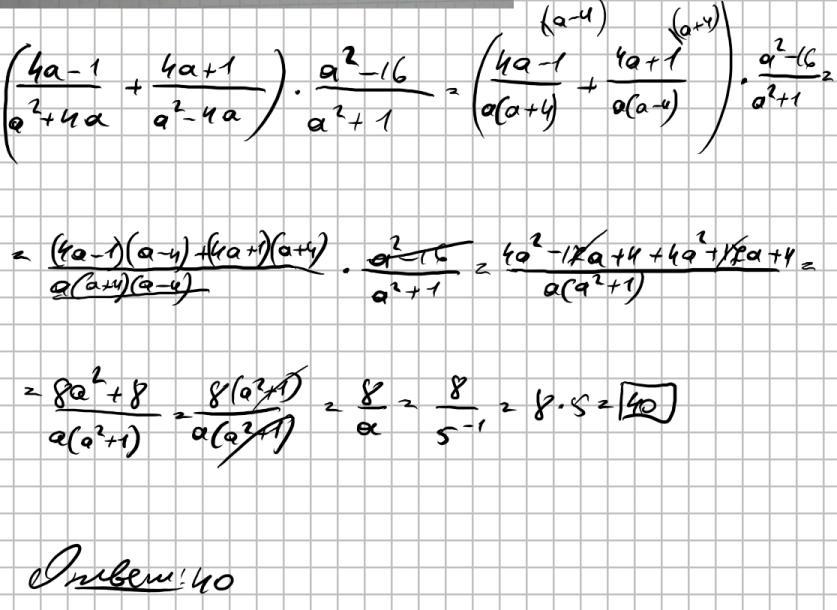 (a-4) (a+4)
((4a-1)/(a²+4a) + (4a+1)/(a²-4a)) · (a²-16)/(a²+1) = ((4a-1)/(a(a+4)) + (4a+1)/(a(a-4))) · (a²-16)/(a²+1) =
= ((4a-1)(a-4)+(4a+1)(a+4))/(a(a+4)(a-4)) · (a²-16)/(a²+1) = (4a²-17a+4+4a²+17a+4)/(a(a²+1)) =
= (8a²+8)/(a(a²+1)) = (8(a²+1))/(a(a²+1)) = 8/a = 8/5⁻¹ = 8·5 = 40
Ответ: 40